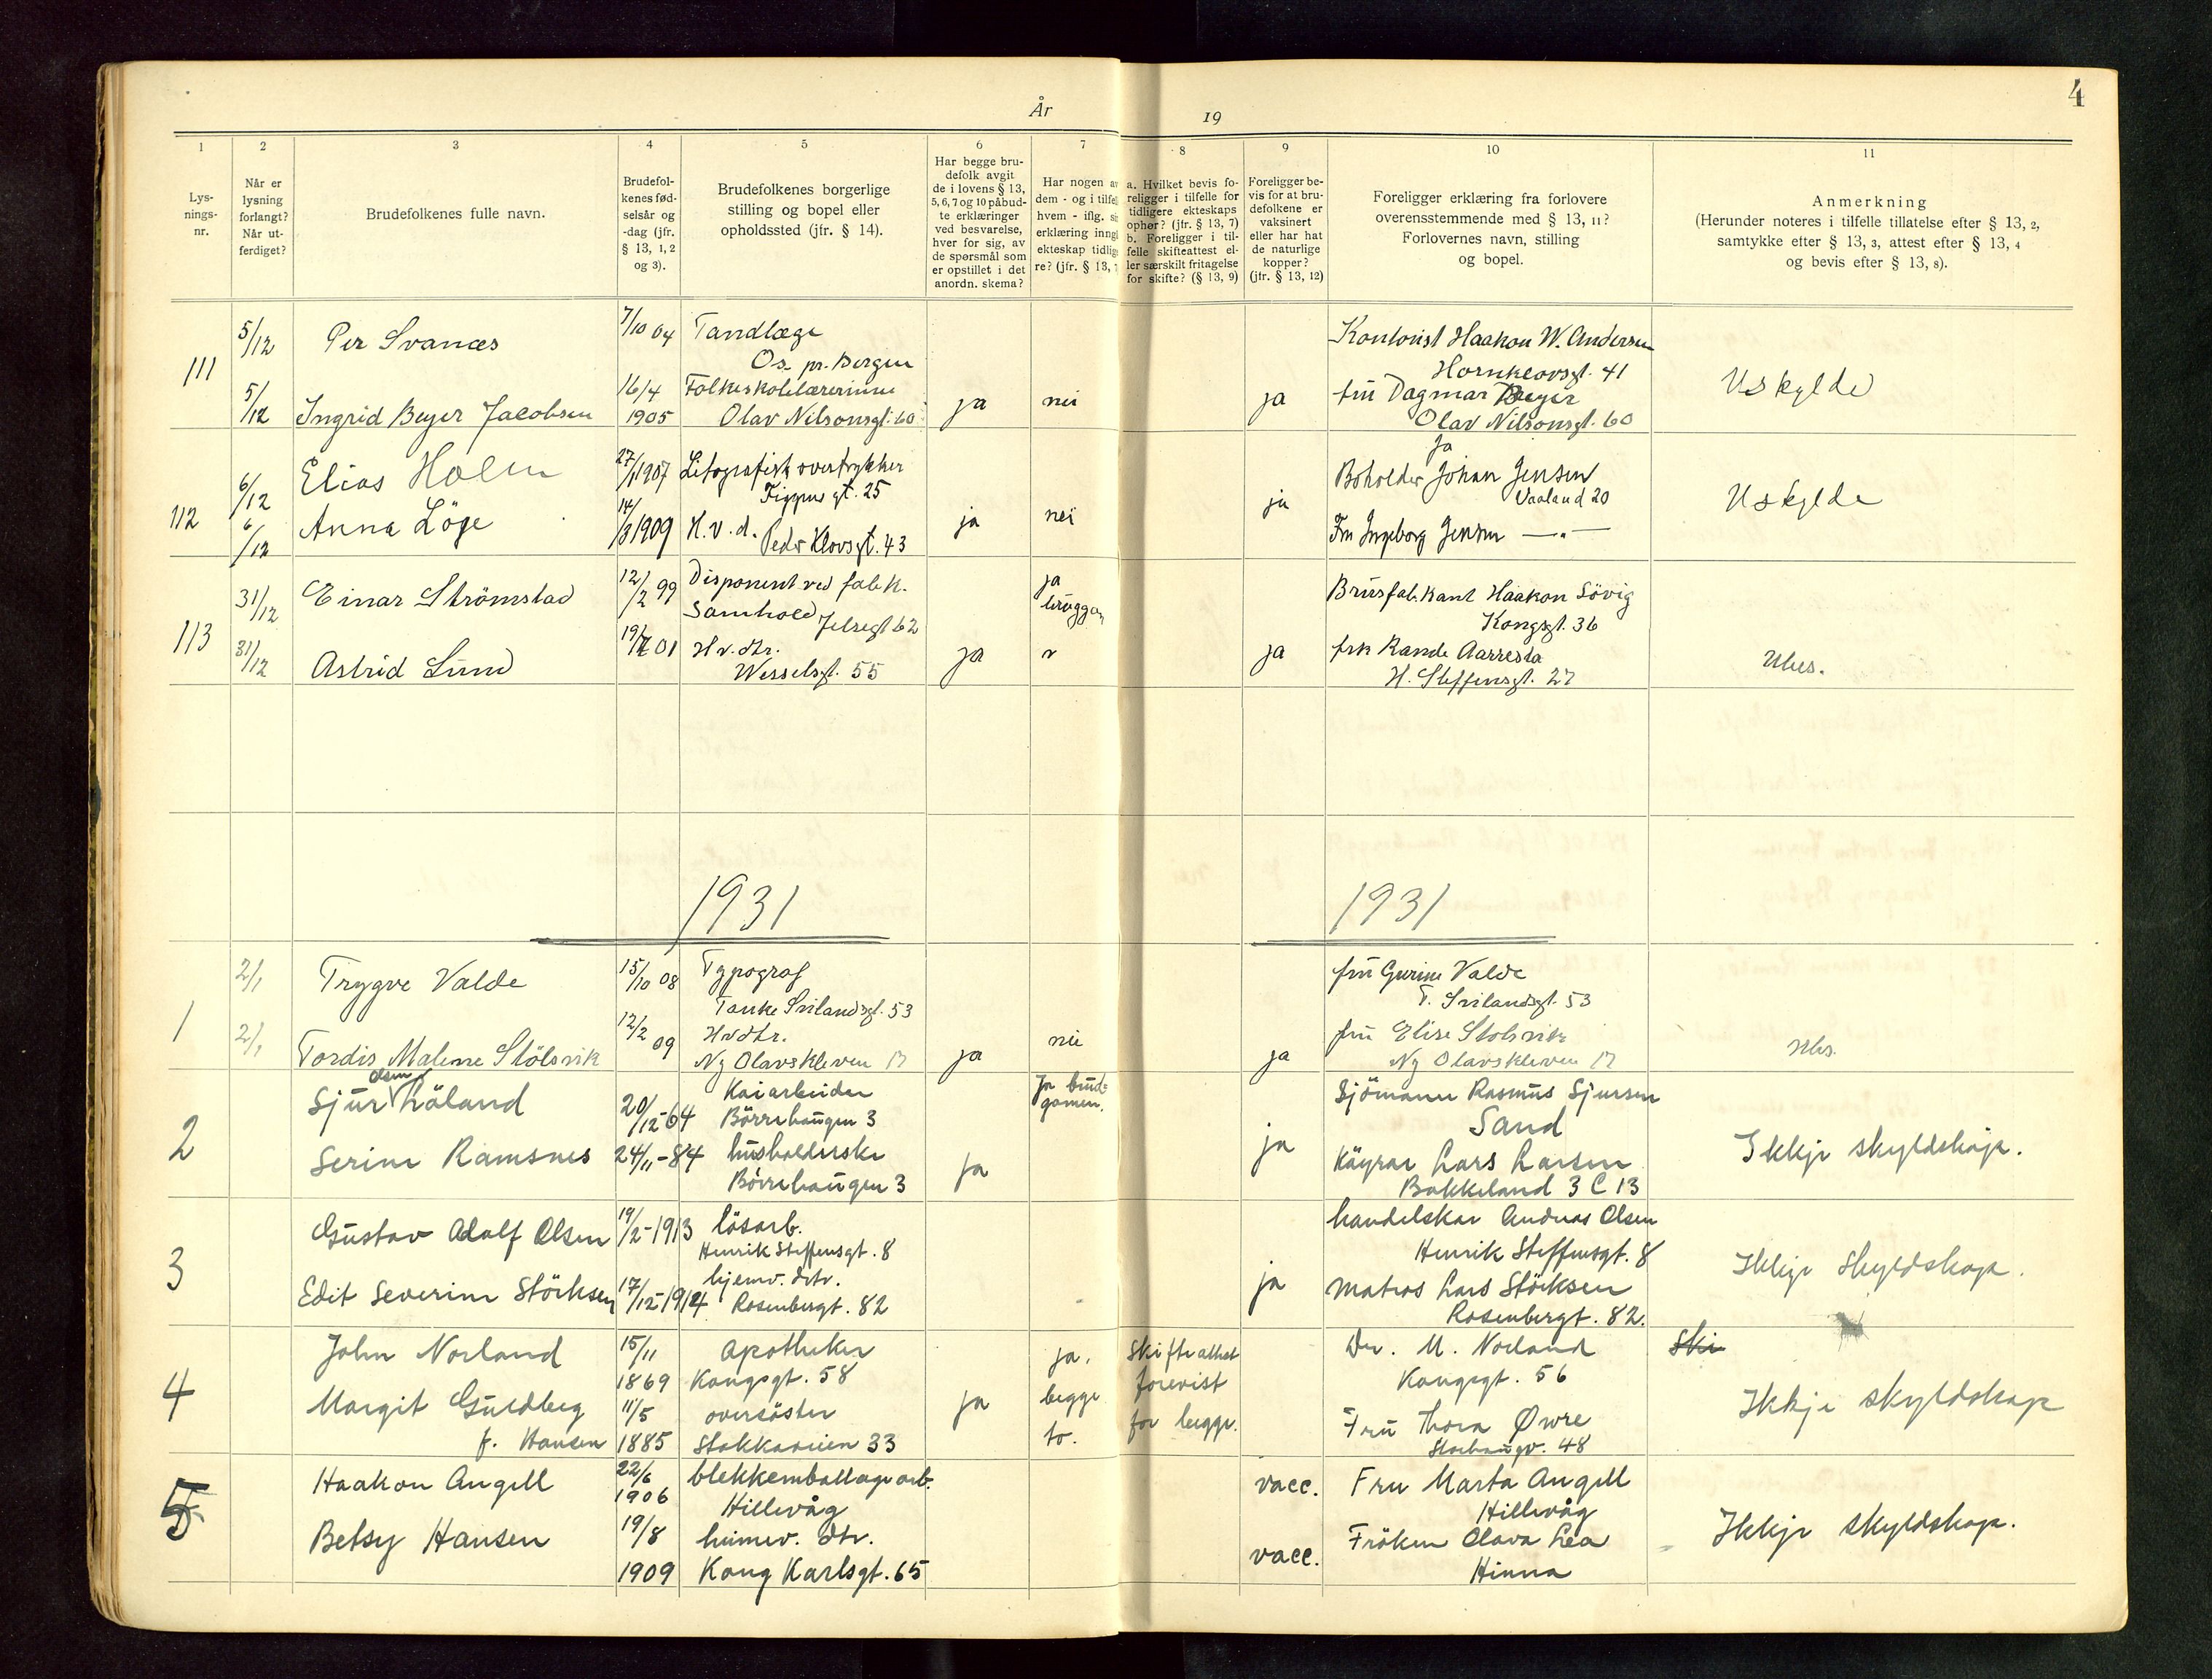 4
År
19
1
2
3
4
5
6
7
8
9
10
11
Lys-
nings-
nr.
Når er
lysning
forlangt?
Når ut-
ferdiget?
Brudefolkenes fulle navn.
Brudefol-
kenes fød-
selsår og
-dag (jfr.
§ 13, 1, 2
og 3).
Brudefolkenes borgerlige
stilling og bopel eller
opholdssted (jfr. § 14).
Har begge bru-
defolk avgit
de i lovens § 13,
5, 6, 7 og 10 påbud-
te erklæringer
ved besvarelse,
hver for sig, av
de spørsmål som
er opstillet i det
anordn. skema?
Har nogen av
dem - og i tilfel
hvem - iflg. si
erklæring inngå
ekteskap tidlig
re? (jfr. § 13, 7
a. Hvilket bevis fo-
religger i tilfelle for
tidligere ekteskaps
ophør? (jfr. § 13, 7)
b. Foreligger i til-
felle skifteattest el-
ler særskilt fritagelse
for skifte? (§ 13, 9)
Foreligger be-
vis for at bru-
defolkene er
vaksinert
eller har hat
de naturlige
kopper?
(jfr. § 13, 12)
Foreligger erklæring fra forlovere
overensstemmende med § 13, 11?
Forlovernes navn, stilling
og bopel.
Anmerkning
(Herunder noteres i tilfelle tillatelse efter § 13, 2,
samtykke efter § 13, 3, attest efter § 13, 4
og bevis efter § 13, 8).
111
5/12
Per Svanæs
7/10 04
Tandlæge
Os. pr. Bergen
5/12
Ingrid Beyer Jacobsen
16/4
1905
Folkeskolelærerinne
Olav Nilsonsgt. 60
ja
nei
ja
Kontorist Haakon W. Andersen
Hornklovsgt. 41
fru Dagmar Beyer
Olav Nilsonsgt. 60
Uskylde
112
6/12
Elias Holm
27/1 1907
Litografisk overtrykker
gt. 25
6/12
Anna Löge
14/8 1909
H. v. d.
Peder Klovsgt. 43
ja
nei
ja
ja
Boholder Johan Jensen
Vaaland 20
Fru Ingeborg Jensen —"—
Uskylde
113
31/12
Einar Strömstad
12/2 99
Disponent ved fabk.
Samhold Jelsegt 62
31/12
Astrid Lund
01
Hv. dtr.
Wesselsgt. 55
ja
ja
bruggom
ja
Brusfabrikant Haakon Sövig
Kongsgt. 36
frk Rande Aarresta
H. Steffensgt. 27
Ubes.
1931
1931
1
2/1
Trygve Valde
15/10 08
Typograf
Tanke Svilandsgt. 53
2/1
Tordis Malene Stölsvik
12/2 09
Hvdtr.
Ny Olavskleven 17
ja
nei
ja
fru Gurine Valde
T. Svilandsgt. 53
fru Elise Stolsvik
Ny Olavskleven 17
Ubs.
2
Olsen
Sjur Löland
20/12-64
Kaiarbeider
Börrehaugen 3
Serine Ramsnes
24/11-84
husholderske
Börrehaugen 3
ja
Ja brud-
gomen.
ja
Sjömann Rasmus Sjursen
Sand
Köyrar Lars Larsen
Bakkeland 3 C 13
Ikkje skyldskap.
3
Gustav Adolf Olsen
19/2-1913
lösarb.
Henrik Steffensgt. 8
Edit Severine Störksen
17/12-1914
hjemv. dtr.
Rosenbergt. 82
ja
handelskar Andreas Olsen
Henrik Steffensgt. 8
Matros Lars Störksen
Rosenbergt. 82.
Ikkje skyldskap.
4
John Norland
15/11
1869
Apotheker
Kongsgt. 58
Margit Guldberg
f. Hansen
11/5
1885
oversöster
Stokkaveien 33
ja
ja.
begge
to.
Skifteattest
forevist
for begge.
Dr. M. Norland
Kongsgt. 56
Fru Thora Øwre
Storhaugv. 48
Ski
Ikkje skyldskap
5
Haakon Angell
22/6
1906
blekkemballage arb.
Hillevåg
Betsy Hansen
19/8
1909
heimev. dtr.
Kong Karlsgt. 65
vacc.
vacc.
Fru Marta Angell
Hillevåg
Fröken Olava Lea
Hinna
Ikkje skyldskap.